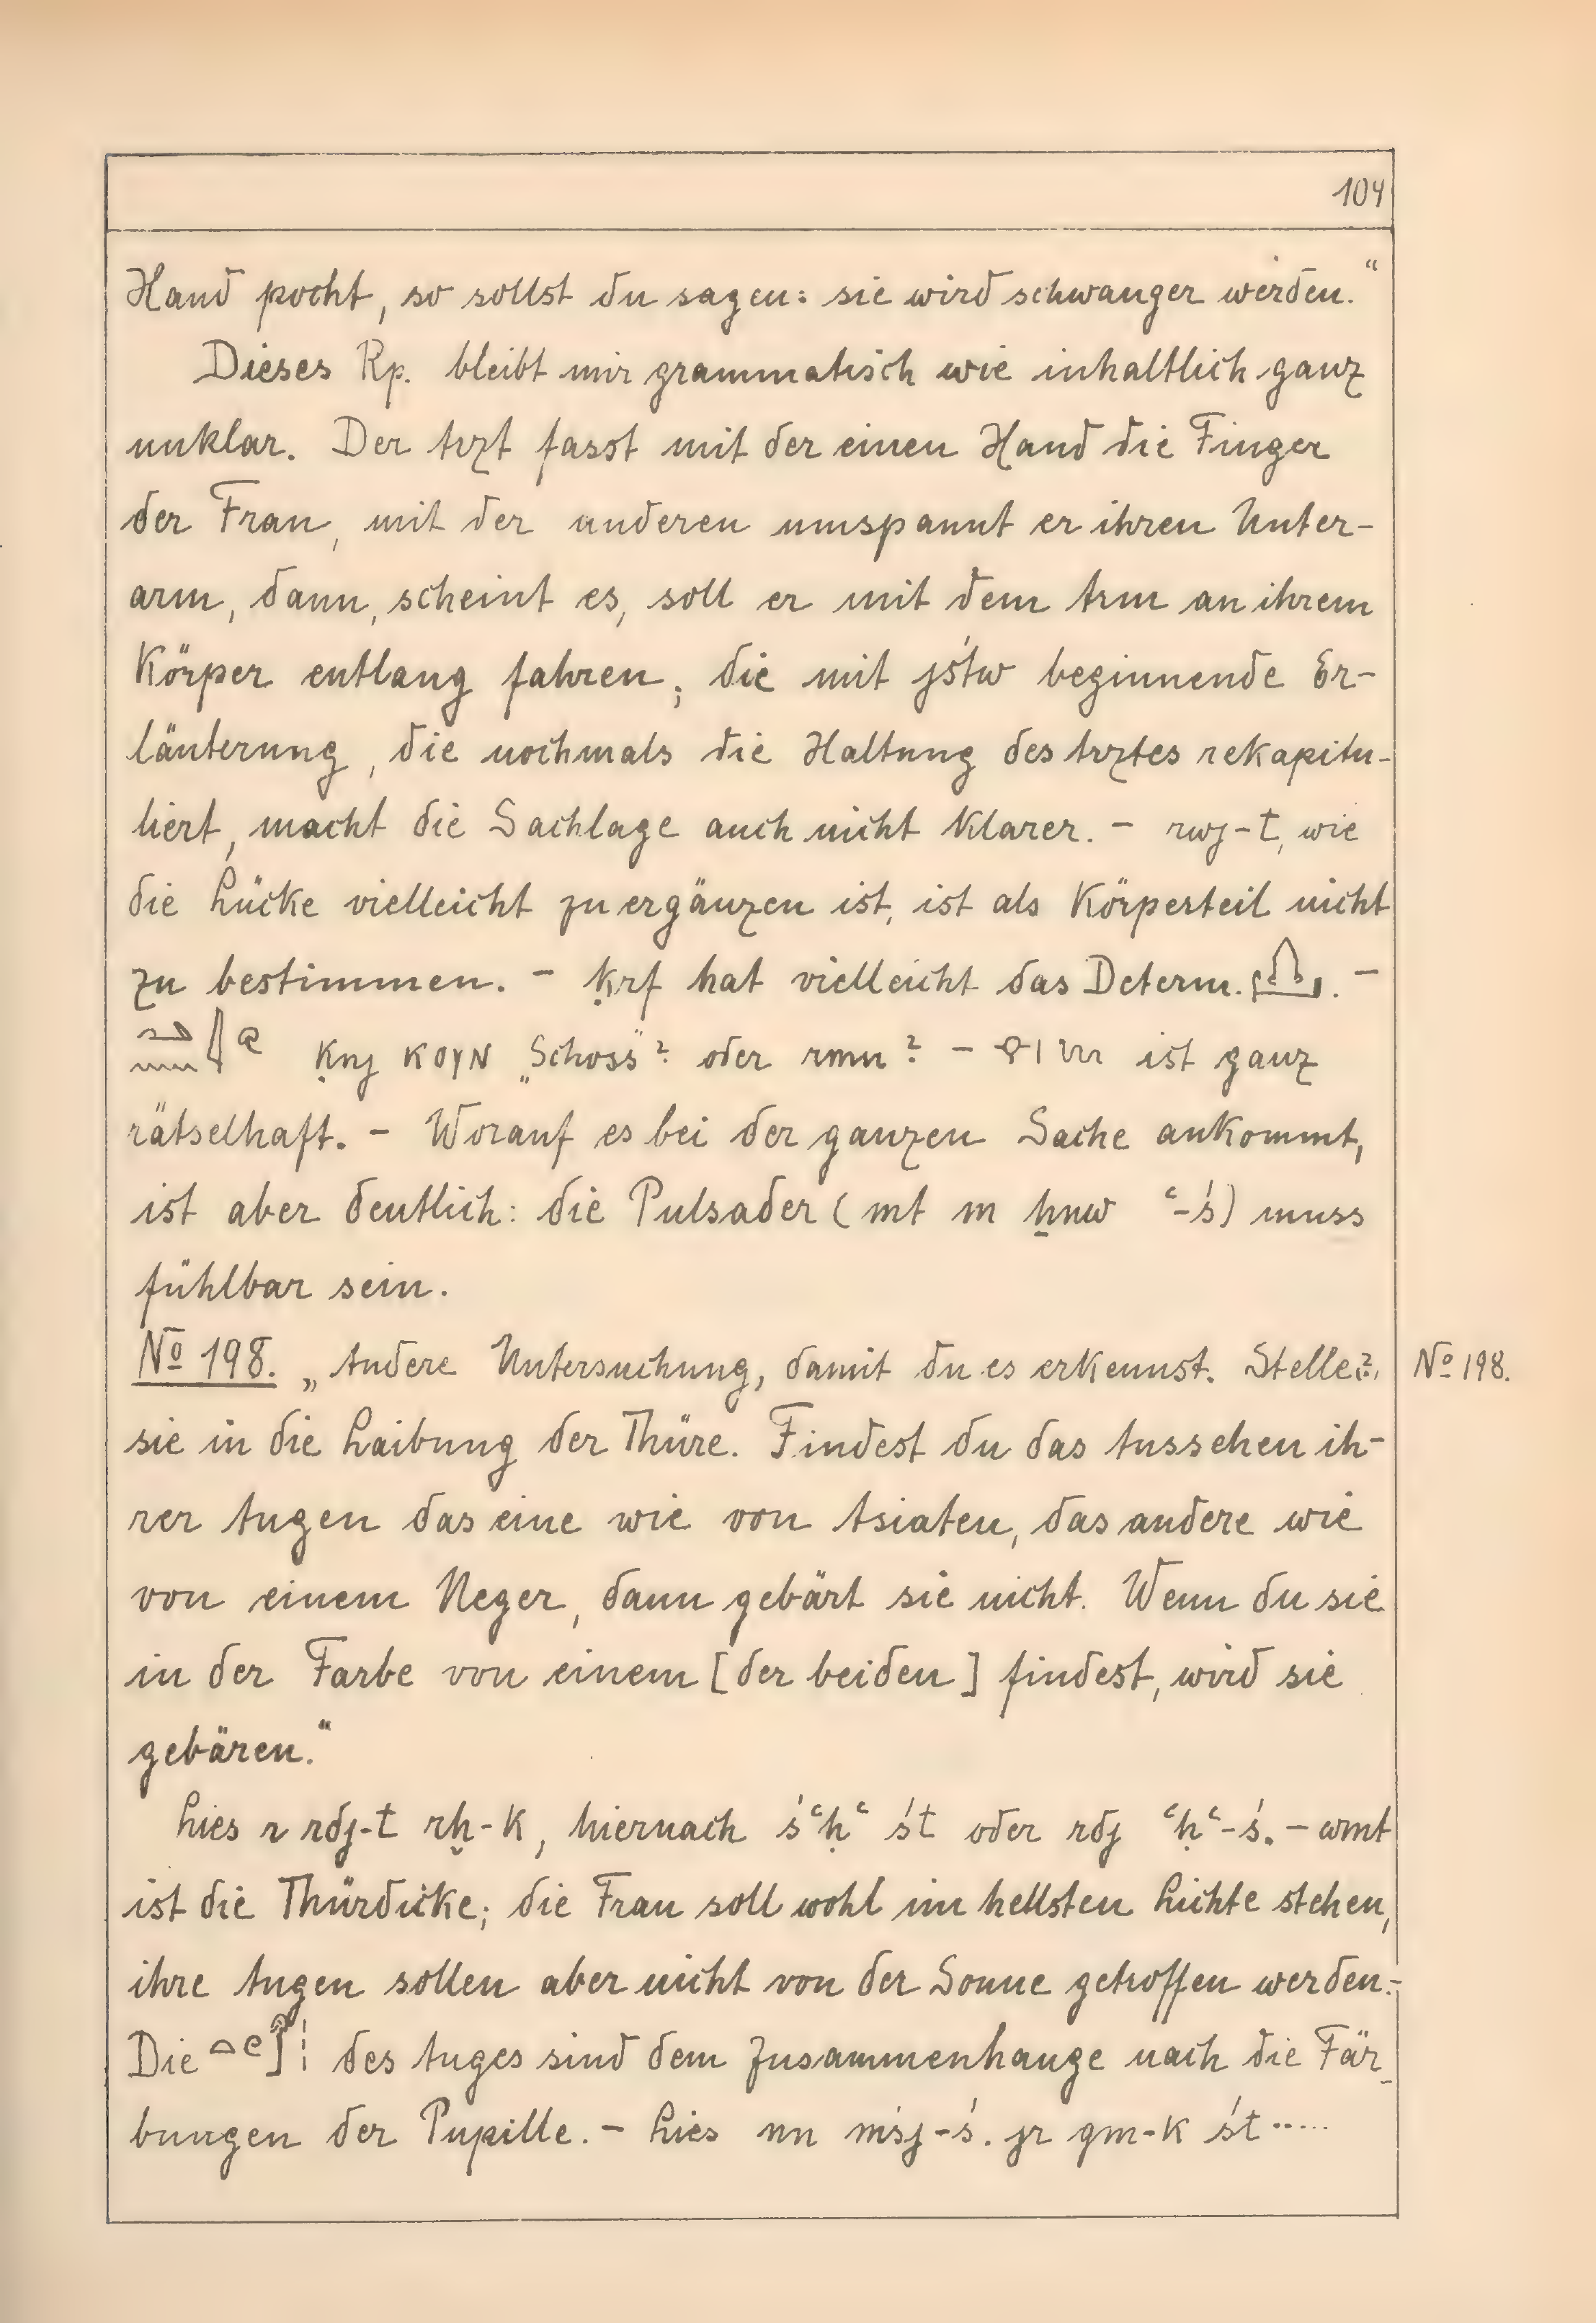 104
Hand pocht, so sollst du sagen: sie wird schwanger werden.“
Dieses Rp. bleibt mir grammatisch wie inhaltlich ganz
unklar. Der Arzt fasst mit der einen Hand die Finger
der Frau, mit der anderen umspannt er ihren Unter-
arm, dann, scheint es, soll er mit dem Arm an ihrem
Körper entlang fahren; die mit jśtw beginnende Er-
läuterung, die nochmals die Haltung des Arztes rekapitu-
liert, macht die Sachlage auch nicht klarer. – rwj-t, wie
die Lücke vielleicht zu ergänzen ist, ist als Körperteil nicht
zu bestimmen. – ḳrf hat vielleicht das Determ. –
ḳnj ⲕⲟⲩⲛ „Schoss“? oder rmn? – ist ganz
rätselhaft. – Worauf es bei der ganzen Sache ankommt,
ist aber deutlich: die Pulsader (mt m ẖnw ʿ-ś) muss
fühlbar sein.
No 198. „Andere Untersuchung, damit du es erkennst. Stelle(?) No 198.
sie in die Laibung der Thüre. Findest du das Aussehen ih-
rer Augen das eine wie von Asiaten, das andere wie
von einem Neger, dann gebärt sie nicht. Wenn du sie
in der Farbe von einem [der beiden] findest, wird sie
gebären.“
Lies r rdj-t rḫ-k, hiernach śʿḥʿ śt oder rdj ʿḥʿ-ś. – wmt
ist die Thürdicke; die Frau soll wohl im hellsten Lichte stehen,
ihre Augen sollen aber nicht von der Sonne getroffen werden. –
Die des Auges sind dem Zusammenhange nach die Fär-
bungen der Pupille. – Lies nn mśj-ś. jr gm-k śt .....